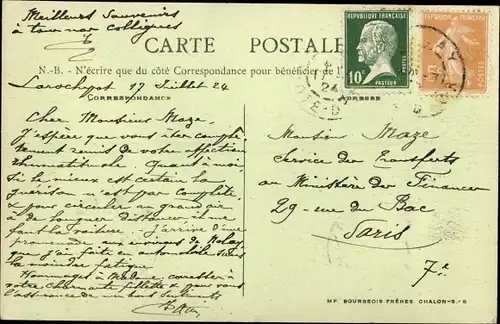 Meilleurs Souvenirs
à tous nos collègues
CARTE POSTALE
N.-B. - N'écrire que du côté Correspondance pour bénéficier de l'
CORRESPONDANCE
ADRESSE
RÉPUBLIQUE FRANÇAISE
10c
PASTEUR
POSTES
RÉPUBLIQUE FRANÇAISE
5c
NAY
24
Larochepot 17 Juillet 24
Cher Monsieur Maze
J'espère que vous êtes complè-
tement remis de votre affection
rhumatismale. Quant à moi,
si le mieux est certain la
guérison n'est pas complète,
& pour circuler au grand air
à de longues distances, il me
faut la voiture. J'arrive d'une
promenade aux environs de Nolay,
que j'ai faite en automobile sans
la moindre fatigue.
Hommages à Madame, caresses à
votre charmante fillette & pour vous
l'assurance de mes bons sentiments
Monsieur Maze
Service des Transferts
au Ministère des Finances
29 - rue du Bac
Paris
7e
MP. BOURGEOIS FRÈRES CHALON-S-S